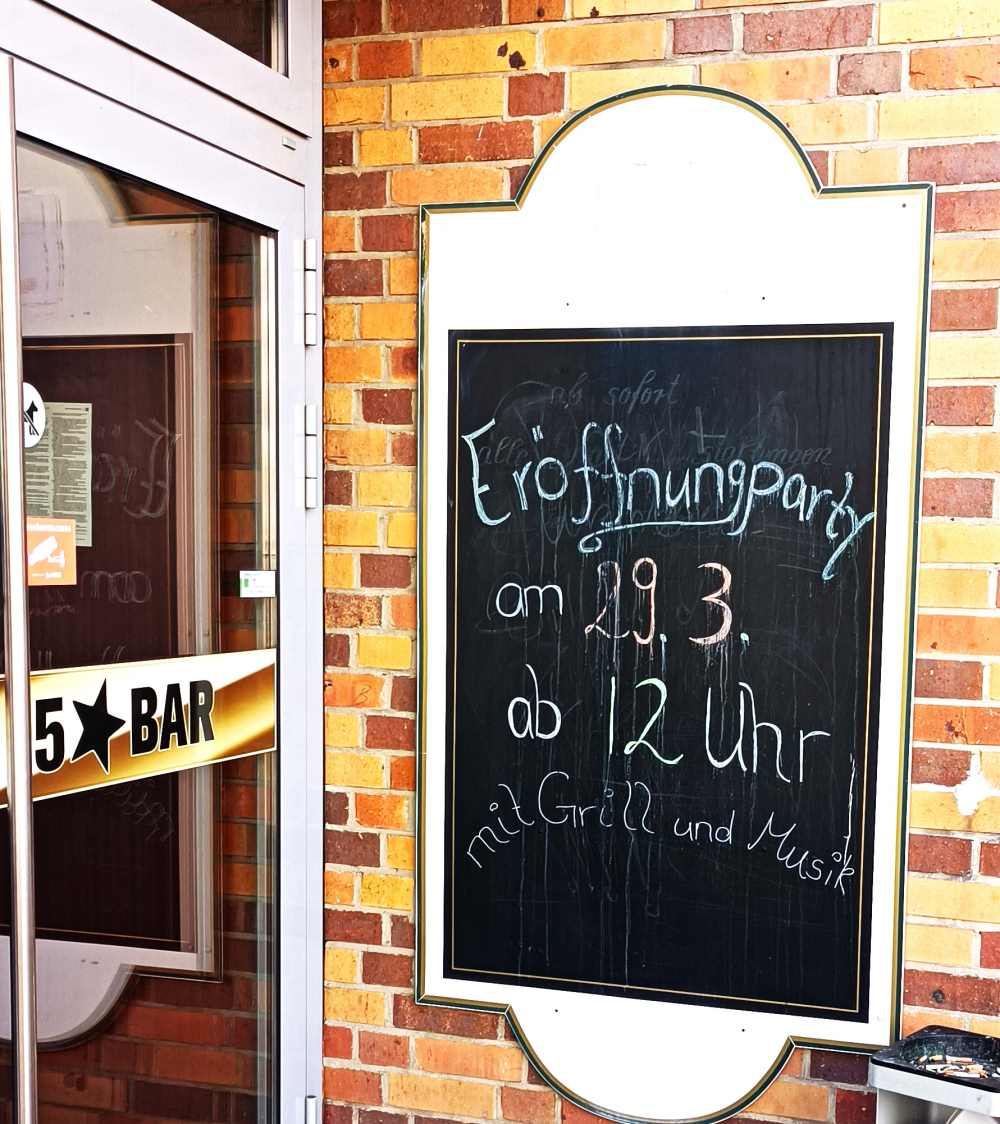 ab sofort
Eröffnungparty
am 29. 3.
ab 12 Uhr
mit Grill und Musik
5★BAR